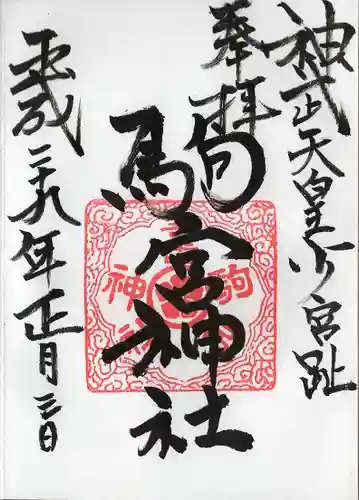 神武天皇少宮趾
奉拝
駒宮神社
駒宮神社
平成二十九年正月三日